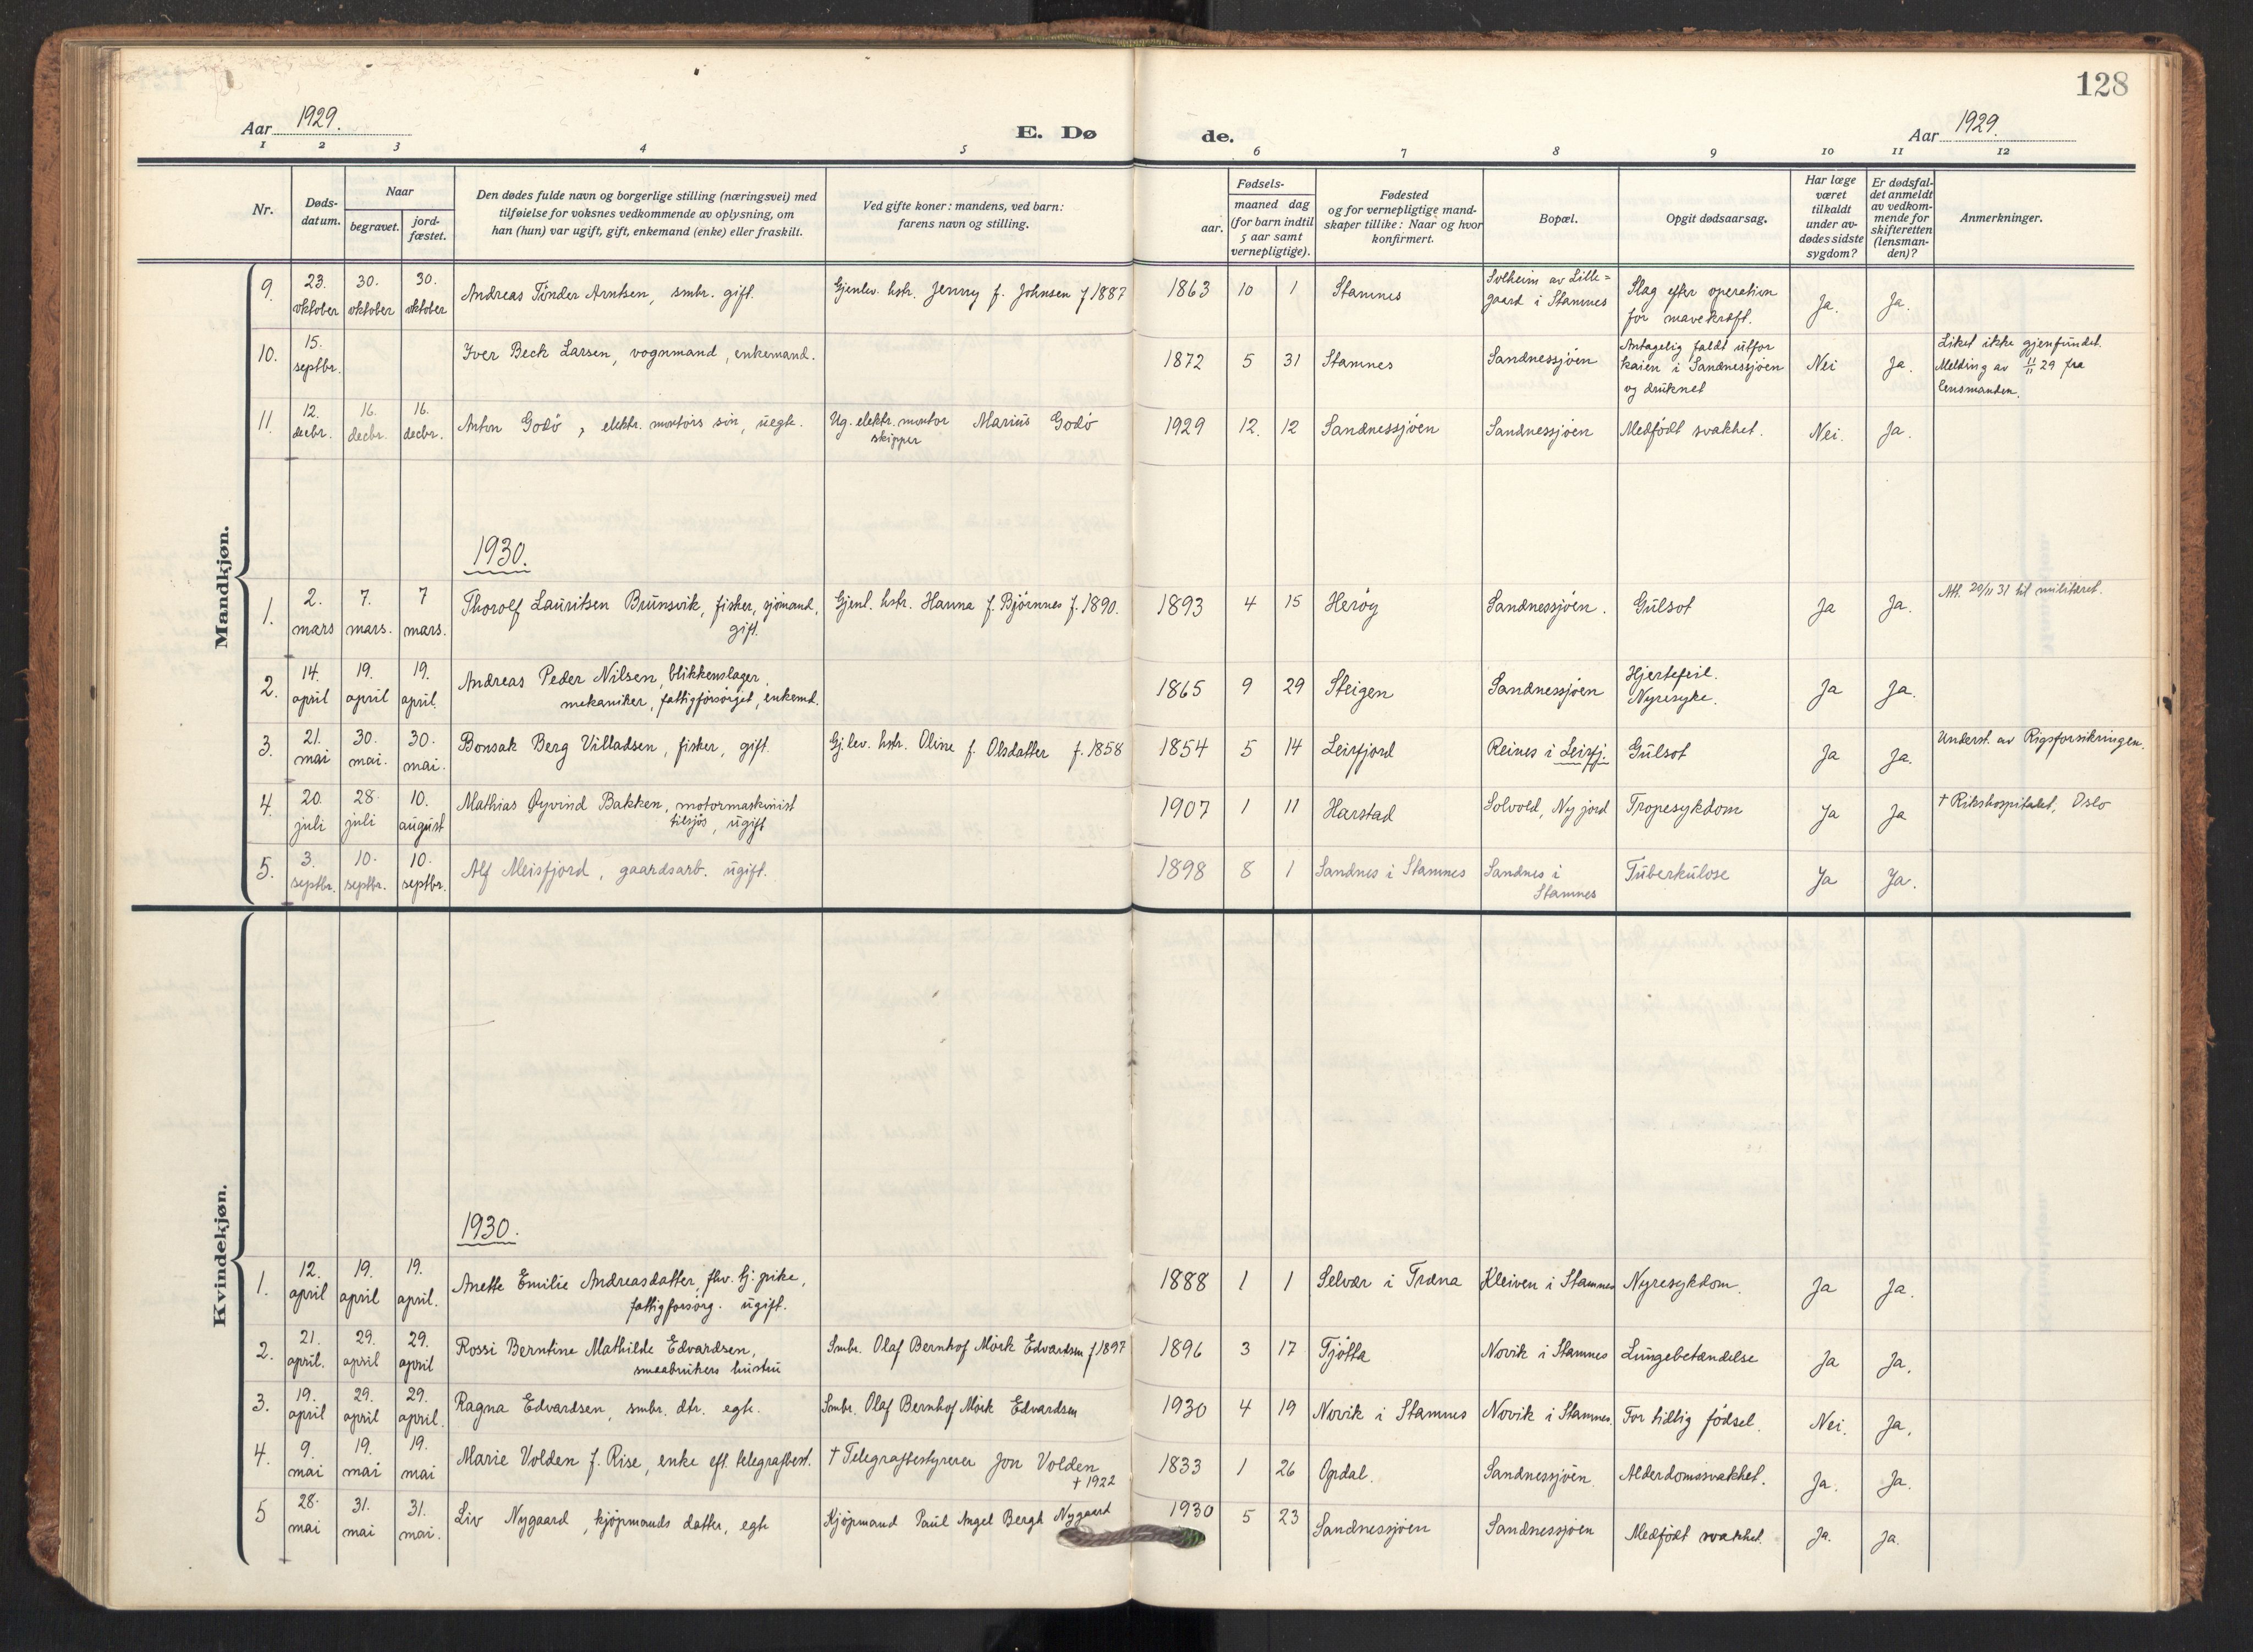 128
Aar 1929. E. Dø de. Aar 1929.
1 2 3 4 5 6 7 8 9 10 11 12
Nr.
Døds-
datum.
Naar
begravet.
jord-
fæstet.
Den dødes fulde navn og borgerlige stilling (næringsvei) med
tilføielse for voksnes vedkommende av oplysning, om
han (hun) var ugift, gift, enkemand (enke) eller fraskilt.
Ved gifte koner: mandens, ved barn:
farens navn og stilling.
Fødsels-
aar.
maaned dag
(for barn indtil
5 aar samt
vernepligtige).
Fødested
og for vernepligtige mand-
skaper tillike: Naar og hvor
konfirmert.
Bopæl.
Opgit dødsaarsag.
Har læge
været
tilkaldt
under av-
dødes sidste
sygdom?
Er dødsfal-
det anmeldt
av vedkom-
mende for
skifteretten
(lensman-
den)?
Anmerkninger.
Mandkjøn.
9. 23. oktober 30. oktober 30. oktober Andreas Tönder Arntsen, smbr. gift. Gjenlev. hstr. Jenny f. Johnsen f 1887 1863 10 1 Stamnes Solheim av Lille=
gaard i Stamnes Slag efter operation
for mavekræft. Ja. Ja.
10. 15. septbr. Iver Beck Larsen, vognmand, enkemand. 1872 5 31 Stamnes Sandnessjöen Antagelig faldt utfor
kaien i Sandnessjöen
og druknet Nei Ja. Liket ikke gjenfundet.
Melding av 11/11 29 fra
lensmanden.
11. 12. decbr. 16. decbr. 16. decbr. Anton Godö, elektr. montörs sön, uegte. Ug. elektr. montör Marius Godö
skipper 1929 12. 12 Sandnessjöen Sandnessjöen Medfödt svakhet. Nei. Ja.
1930.
1. 2. mars 7. mars. 7 mars. Thorolf Lauritsen Brunsvik, fisker, sjömand,
gift. Gjenl. hstr. Hanna f. Björnnes f. 1890. 1893 4 15 Heröy Sandnessjöen. Gulsot Ja Ja. Att. 20/11 31 til militæret.
2. 14. april 19. april 19. april. Andreas Peder Nilsen, blikkenslager,
mekaniker, fattigforsörget, enkemd. 1865 9 29 Steigen Sandnessjöen Hjertefeil.
Nyresyke. Ja Ja.
3. 21. mai 30. mai. 30. mai. Bonsak Berg Villadsen, fisker, gift. Gj.lev. hstr. Oline f. Olsdatter f. 1858 1854 5 14 Leirfjord Reines i Leirfj. Gulsot Ja Ja. Underst. av Rigsforsikringen.
4. 20. juli 28. juli 10. august Mathias Øyvind Bakken, motormaskinist
tilsjös, ugift 1907 1 11 Harstad Solvold, Ny jord Tropesykdom Ja Ja † Rikshospitalet, Oslo
5. 3. septbr. 10. septbr. 10. septbr. Alf Meisfjord, gaardsarb. ugift. 1898 8 1 Sandnes i Stamnes Sandnes i
Stamnes Tuberkulose Ja Ja.
Kvindekjøn.
1930.
1. 12. april 19. april 19. april. Anette Emilie Andreasdatter, fhv. tj. pike,
fattigforsörg. ugift. 1888 1 1 Selvær i Træna Kleiven i Stamnes Nyresykdom. Ja Ja.
2. 21. april. 29. april 29. april Rossi Berntine Mathilde Edvardsen,
smaabrukers hustru Smbr. Olaf Bernhof Mörk Edvardsen f 1897 1896 3 17 Tjötta Novik i Stamnes Lungebetændelse Ja Ja.
3. 19. april 29. april 29. april. Ragna Edvardsen, smbr. dtr. egte. Smbr. Olaf Bernhof Mörk Edvardsen 1930 4 19 Novik i Stamnes Novik i Stamnes. For tidlig födsel. Nei. Ja.
4. 9. mai 19. mai 19. mai Marie Volden f. Rise, enke eft. telegrafbest. † Telegrafbestyrerer Jon Volden
† 1922 1833 1 26 Opdal. Sandnessjöen Alderdomssvakhet. Ja. Ja.
5 28. mai 31. mai 31. mai. Liv Nygaard, kjöpmands datter, egte Kjöpmand Paul Angel Bergh Nygaard 1930 5 23 Sandnessjöen Sandnessjöen Medfödt svakhet. Ja. Ja.